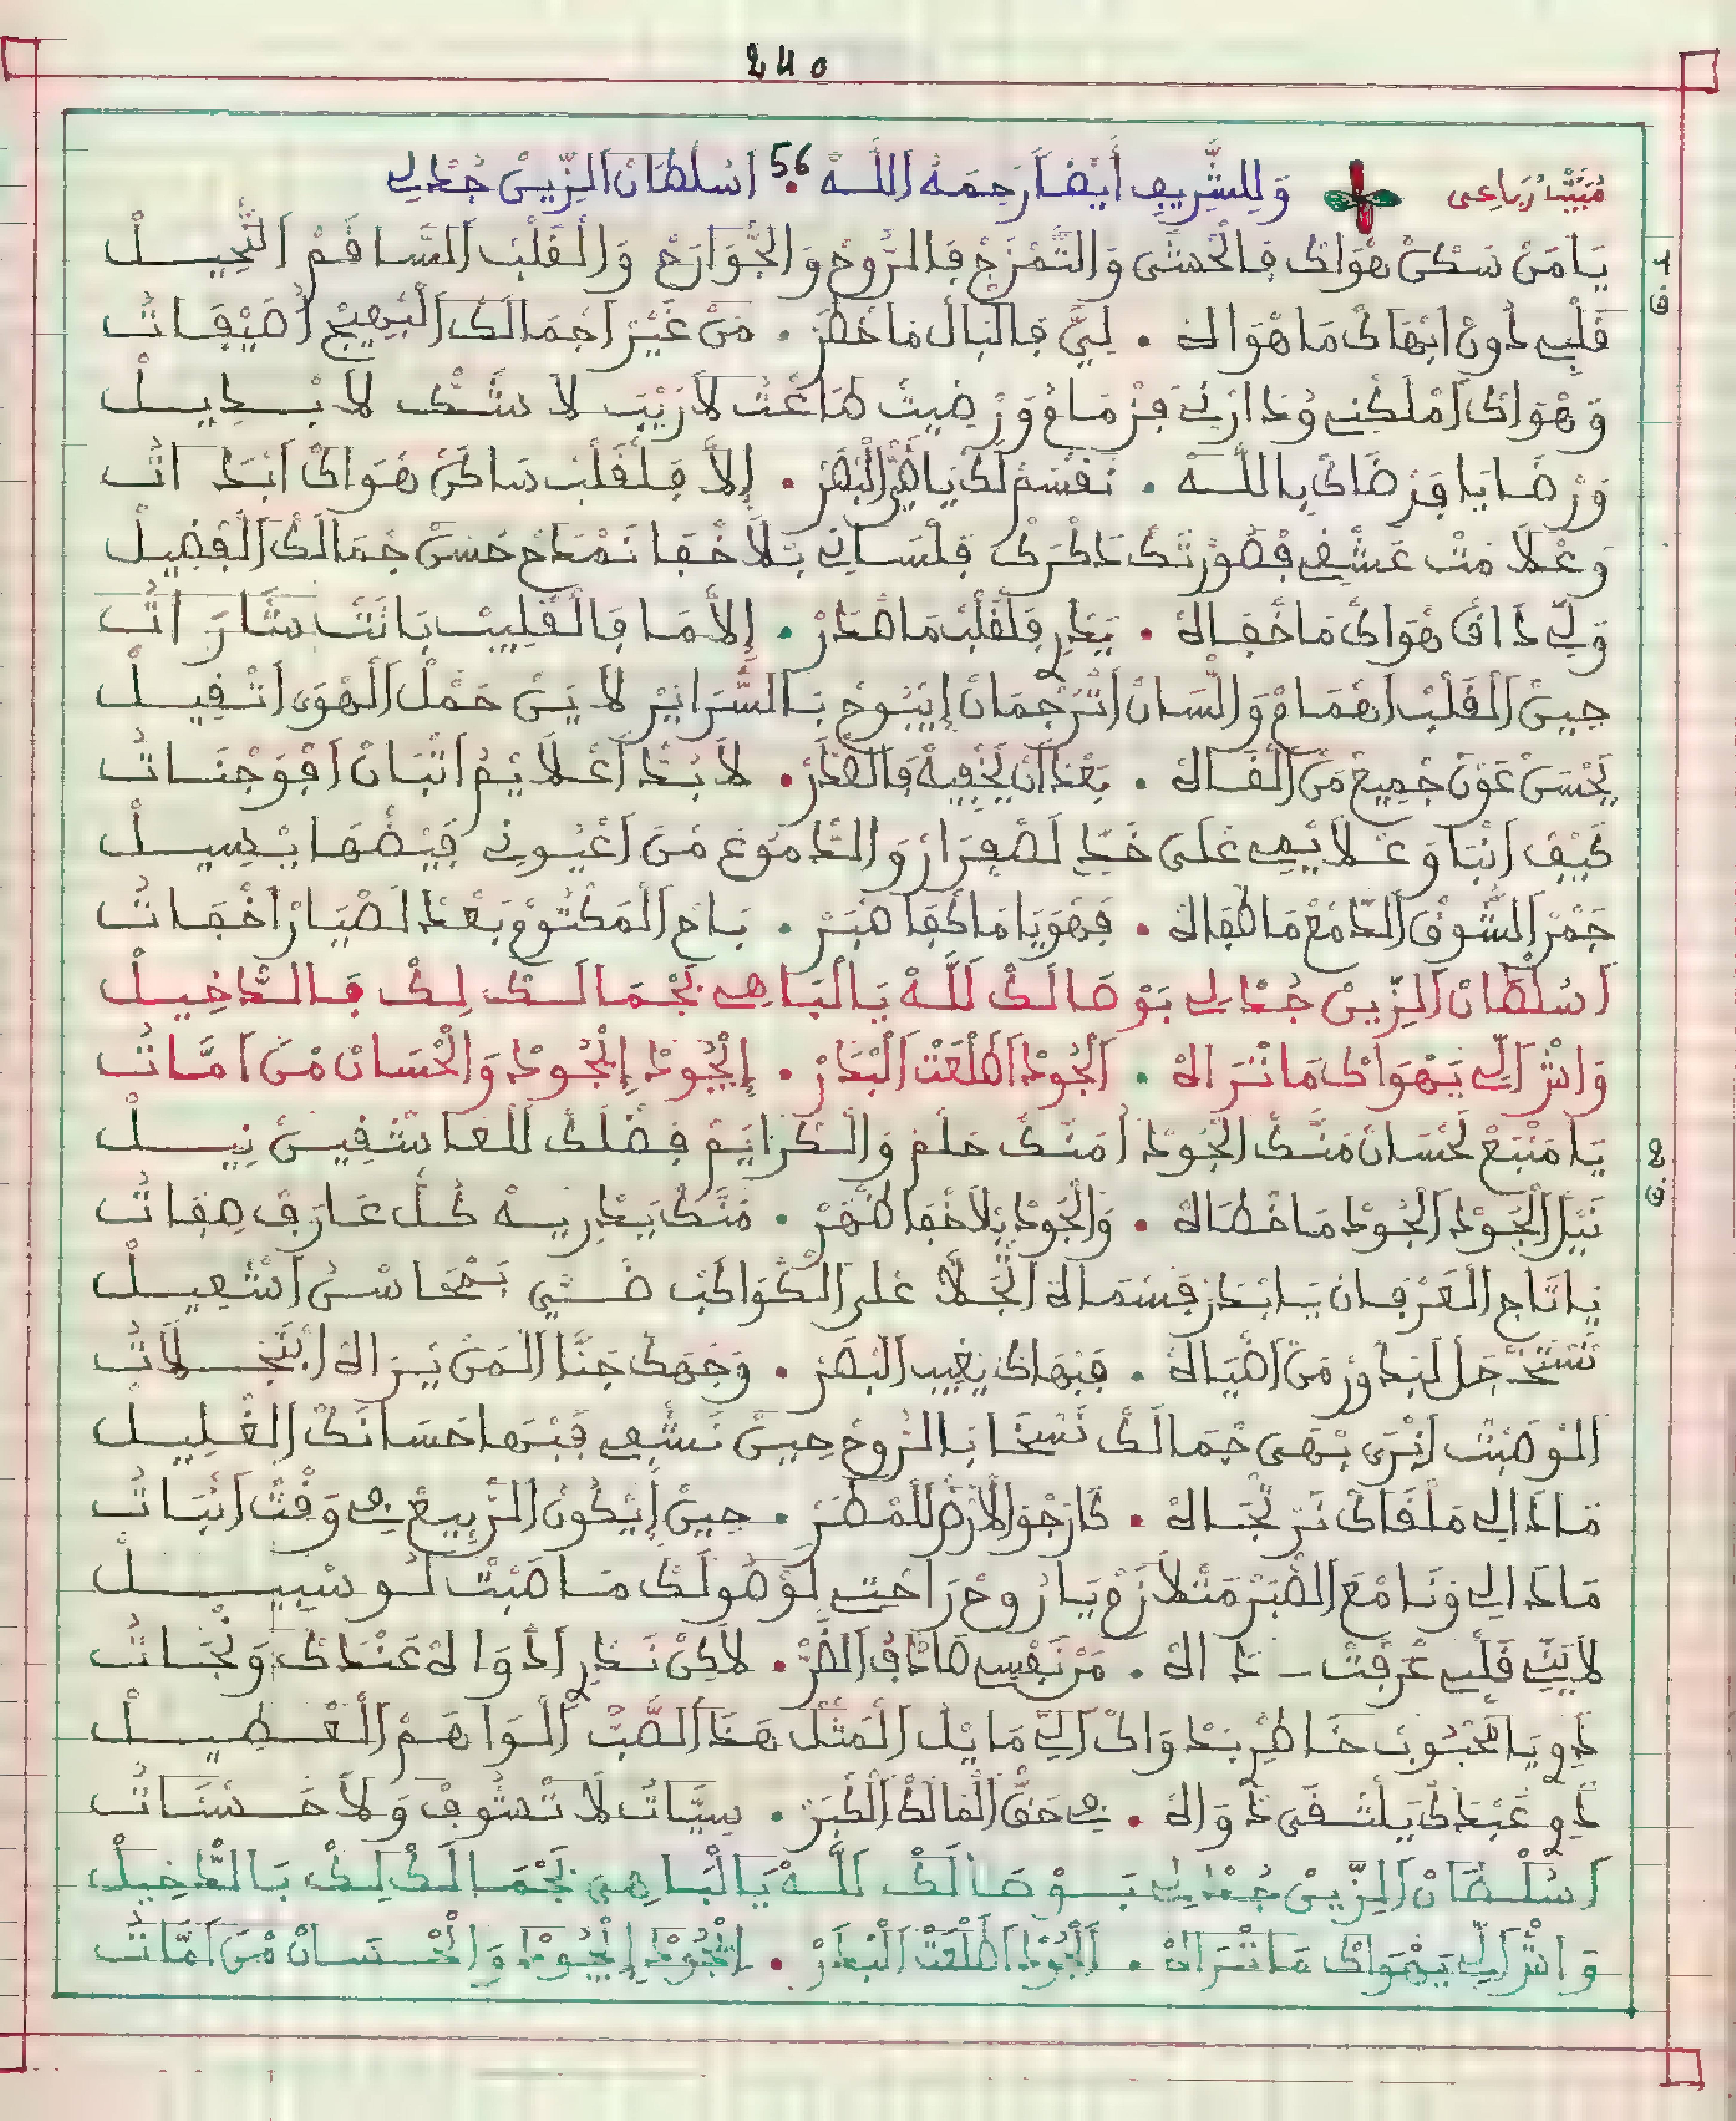 240
مْبَيّتْ رْبَاعِي وَلِلشَّرِيفِ أَيْضًا رَحِمَهُ اللَّهْ 56 اَسُلْطَانْ اَلزِّينْ جُدْ لِي
1 ق
يَا مَنْ سَكنْ هْوَاكْ فَالْحْشَى وَالتّمْزَجْ فَالرُّوحْ وَالجّْوَارَحْ وَالْقَلْبْ السَّاقَمْ النّْحِيلْ
قَلْبِي دُونْ ابْهَاكْ مَا هْوَاهْ . لِيَّ فَالْبَالْ مَا خْطَرْ . مَنْ غَيْرْ اجْمَالَكْ الْبْهِيجْ
وَهْوَاكْ امْلَكْنِي وْدَارْنِي فَزْمَامُ وَرْضِيتْ طَاعْتْ لاَ رَيْبْ لاَ شَكْ لاَ بْدِيلْ
وَرْضَايَا فَرْضَاكْ بِاللَّهْ . نَقْسَمْ لَكْ يَا الْبْصَرْ . إِلاَّ فَلْقَلْبْ سَاكَنْ هْوَاكْ ابَدَاتْ
وَعْلاَمْتْ عَشْقِي فْصُورْتَكْ تَدْكْرَكْ فَلْسَانِي بْلاَ خْفَا نَمْدَحْ حَسْنْ جْمَالَكْ الْفْضِيلْ
وَلِّي ذَاقْ هْوَاكْ مَا خْفَاهْ . يَدْرِ فَلْقَلْبْ مَا هْدَرْ . إِلاَّ مَا فَالْقْلِيبْ بَانَتْ شَارَاتْ
حِينْ الْقَلْبْ وَالْسَانْ اتْرْجْمَانْ إِيبُوحْ بَالسّْرَايَرْ لاَ يَنْ حَمْلْ الْهْوَى اتْقِيلْ
يَحْسَنْ عَوْنْ جْمِيعْ مَنْ الْقَاهْ . بَعْدْ أَنْ يَخْفِيهْ فَالصّْدَرْ . لاَ بُدّْ اعْلاَيَمُ اتْبَانْ افْوَجْنَاتْ
كَيْفْ انْبَاوْ عْلاَيْمِي عْلَى خَدِّ لَصْفِرَارْ وَالدّْمُوعْ مَنْ اعْيُونِي فَيْضْهَا يْسِيلْ
جَمْرْ الشُّوقْ الدّْمَعْ مَا طْفَاهْ . فَهْوَايَا مَا كْفَا صْبَرْ . بَاحْ الْمَكْتُومْ بَعْدْ لَصْيَارْ اخْفَاتْ
اَسُلْطَانْ اَلزِّينْ جُدْ لِي بَوْصَالَكْ لَلَّهْ يَالْبَاهِي بَجْمَالَكْ لِكْ فَالدّْخِيلْ
وَاشْ اَلِّي يَهْوَاكْ مَا تْرَاهْ . اَلْجُودْ اَطَلْعَتْ الْبْدَرْ . إِيجُودْ إِيجُودْ وَالْحْسَانْ مْنْ اَمَّاتْ
2 ق
يَا مَنْبَعْ لَحْسَانْ مَنَّكْ الْجُودْ امَنَّكْ حَلَمْ وَالْكْرَايَمْ فَضْلَكْ لَلْعَاشْقِينْ نِيلْ
نَيْلْ الْجُودْ الْجُودْ مَا خْطَاهْ . وَالْجُودْ بْلاَ خْفَا ظْهَرْ . مَنَّكْ يَدْرِيهْ كُلّْ عَارَفْ صِفَاتْ
يَا تَاجْ الْعَرْفَانْ يَا بْدَرْ فَسْمَاهْ اتْجَلاَّ عْلَى الْكْوَاكَبْ ضَيِّ اشْعِيلْ
لَبْدُورْ مَنْ اضْيَاهْ . فَبْهَاكْ يْغِيبْ الْبْصَرْ . وَجْهَكْ جَنَّا الْمَنْ يْرَاهْ
الْوْصَبْتْ انْرَى بْهَى جْمَالَكْ نَسْخَا بَالرُّوحْ حِينْ نَشْفِي فَبْهَا حَسَانَكْ الْغْلِيلْ
مَا دَالِي مَلْقَاكْ نَرْتْجَاهْ . كَارَجْوَ الاَرْضْ لَلْمْطَرْ . حِينْ إِيكُونْ الرّْبِيعْ فِي وَقْتْ انْبَاتْ
مَا دَالِي وَنَا مْعَ الصّْبَرْ مَتْلاَزَمْ يَا رُوحْ رَاحْتِي لَوْصُولَكْ مَا صَبْتْ لُو سْبِيلْ
لاَيَنِّي قَلْبِي عْرَفْتْ دَاهْ . مَرْ نَفْسِي صَادَفْ الضّْرْ . لاَكِنْ نَدْرِ ادْوَاهْ عَنْدَكْ وَنْجَاتْ
دَوِ يَا مَحْبُوبْ خَاطْرِ بَدْوَاكْ اَلِّي مَا يْلْ الْمَثْلْ هَذَا الصَّبْ الْوَاهَمْ الْعْطِيلْ
دَوِ عَبْدَكْ يَلْشْفَى دْوَاهْ . فِي حَقْ الْمَالَكْ الْكْبَرْ . سِيَّاتْ لاَ تْشُوفْ وَلاَ حَسْنَاتْ
اَسُلْطَانْ اَلزِّينْ جُدْ لِي بَوْصَالَكْ لَلَّهْ يَالْبَاهِي بَجْمَالَكْ لِكْ بَالدّْخِيلْ
وَاشْ اَلِّي يَهْوَاكْ مَا تْرَاهْ . اَلْجُودْ اَطَلْعَتْ الْبْدَرْ . إِيجُودْ إِيجُودْ وَالْحْسَانْ مْنْ اَمَّاتْ